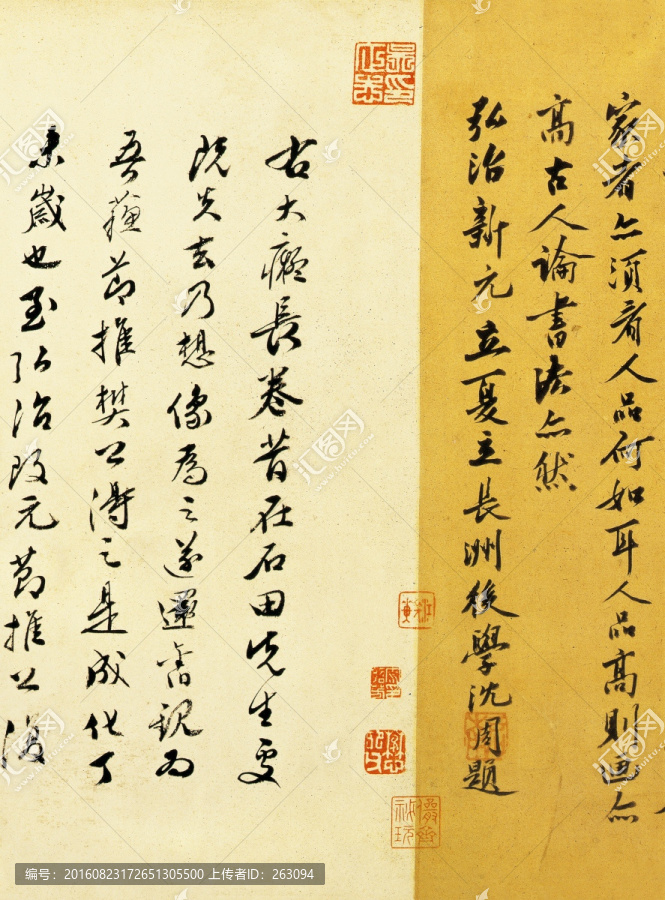 家者亦須看人品何如耳人品高則画亦
高古人論書法亦然
弘治新元立夏立長洲後學沈周題
右大癡長卷昔在石田先生處
既失去乃想像為之遂還舊觀為
吾蘓節推樊公得之是成化丁
未歲也至弘治改元節推公復
汇图网
编号：20160823172651305500 上传者ID：263094